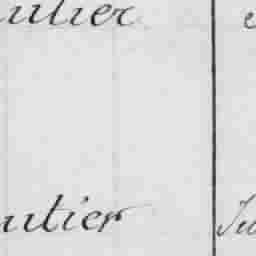 utier
utier Ju